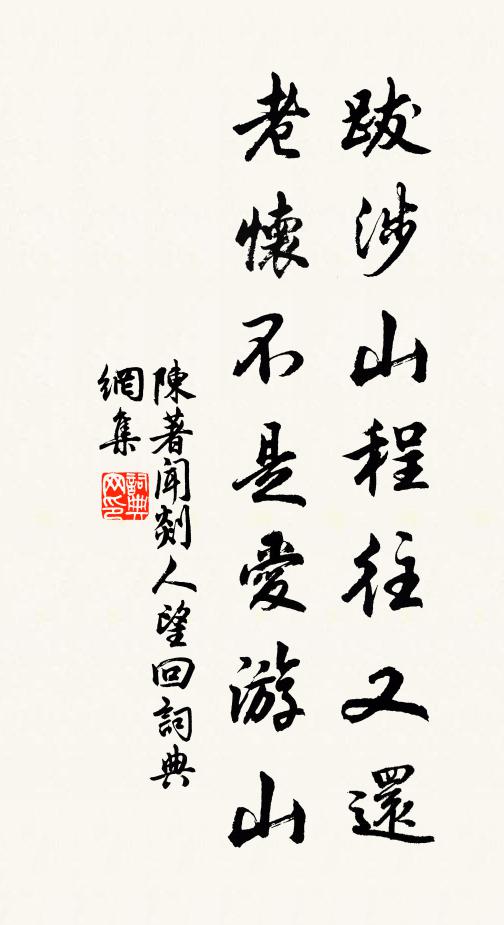 跋涉山程往又還
老懷不是愛游山
陳著聞剡人望回詞典
網集
詞典
网印